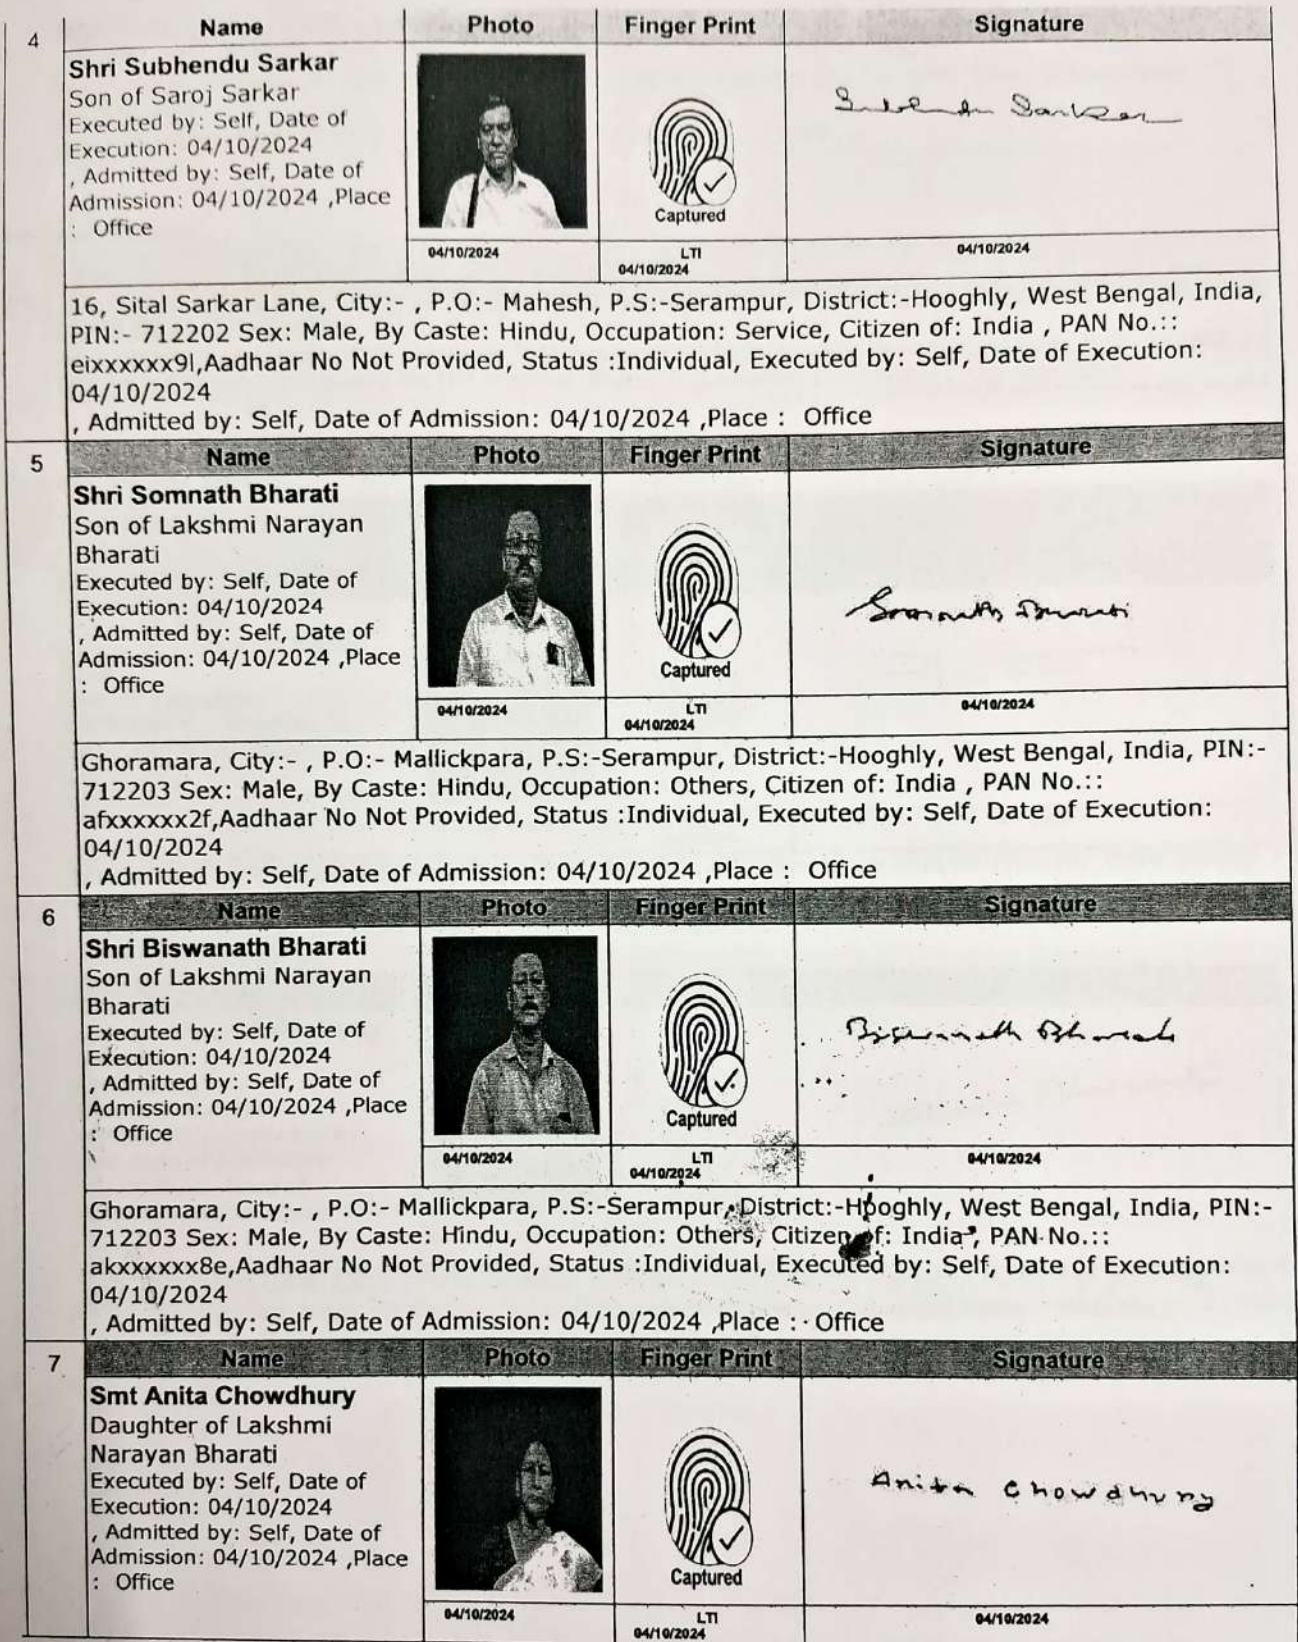 4
Name Photo Finger Print Signature
Shri Subhendu Sarkar
Son of Saroj Sarkar
Executed by: Self, Date of
Execution: 04/10/2024
, Admitted by: Self, Date of
Admission: 04/10/2024 ,Place
: Office
Captured
Subhendu Sarkar
04/10/2024 LTI 04/10/2024
04/10/2024
16, Sital Sarkar Lane, City:- , P.O:- Mahesh, P.S:-Serampur, District:-Hooghly, West Bengal, India,
PIN:- 712202 Sex: Male, By Caste: Hindu, Occupation: Service, Citizen of: India , PAN No.::
eixxxxxx9l,Aadhaar No Not Provided, Status :Individual, Executed by: Self, Date of Execution:
04/10/2024
, Admitted by: Self, Date of Admission: 04/10/2024 ,Place : Office
5
Name Photo Finger Print Signature
Shri Somnath Bharati
Son of Lakshmi Narayan
Bharati
Executed by: Self, Date of
Execution: 04/10/2024
, Admitted by: Self, Date of
Admission: 04/10/2024 ,Place
: Office
Captured
Somnath Bharati
04/10/2024 LTI 04/10/2024
04/10/2024
Ghoramara, City:- , P.O:- Mallickpara, P.S:-Serampur, District:-Hooghly, West Bengal, India, PIN:-
712203 Sex: Male, By Caste: Hindu, Occupation: Others, Citizen of: India , PAN No.::
afxxxxxx2f,Aadhaar No Not Provided, Status :Individual, Executed by: Self, Date of Execution:
04/10/2024
, Admitted by: Self, Date of Admission: 04/10/2024 ,Place : Office
6
Name Photo Finger Print Signature
Shri Biswanath Bharati
Son of Lakshmi Narayan
Bharati
Executed by: Self, Date of
Execution: 04/10/2024
, Admitted by: Self, Date of
Admission: 04/10/2024 ,Place
: Office
Captured
Biswanath Bharati
04/10/2024 LTI 04/10/2024
04/10/2024
Ghoramara, City:- , P.O:- Mallickpara, P.S:-Serampur, District:-Hooghly, West Bengal, India, PIN:-
712203 Sex: Male, By Caste: Hindu, Occupation: Others, Citizen of: India , PAN No.::
akxxxxxx8e,Aadhaar No Not Provided, Status :Individual, Executed by: Self, Date of Execution:
04/10/2024
, Admitted by: Self, Date of Admission: 04/10/2024 ,Place : Office
7
Name Photo Finger Print Signature
Smt Anita Chowdhury
Daughter of Lakshmi
Narayan Bharati
Executed by: Self, Date of
Execution: 04/10/2024
, Admitted by: Self, Date of
Admission: 04/10/2024 ,Place
: Office
Captured
Anita Chowdhury
04/10/2024 LTI 04/10/2024
04/10/2024